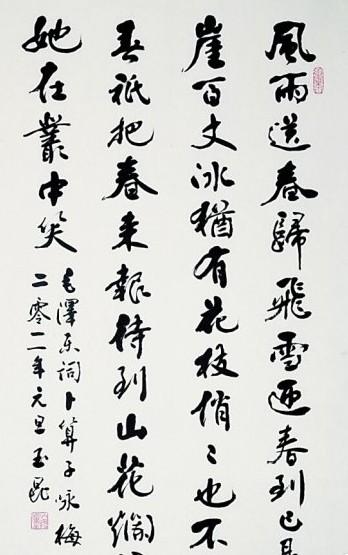 風雨送春歸飛雪迎春到已是
崖百丈冰猶有花枝俏〻也不
春祇把春來報待到山花爛
她在叢中笑
毛澤東詞卜算子咏梅
二零二年元旦玉昆